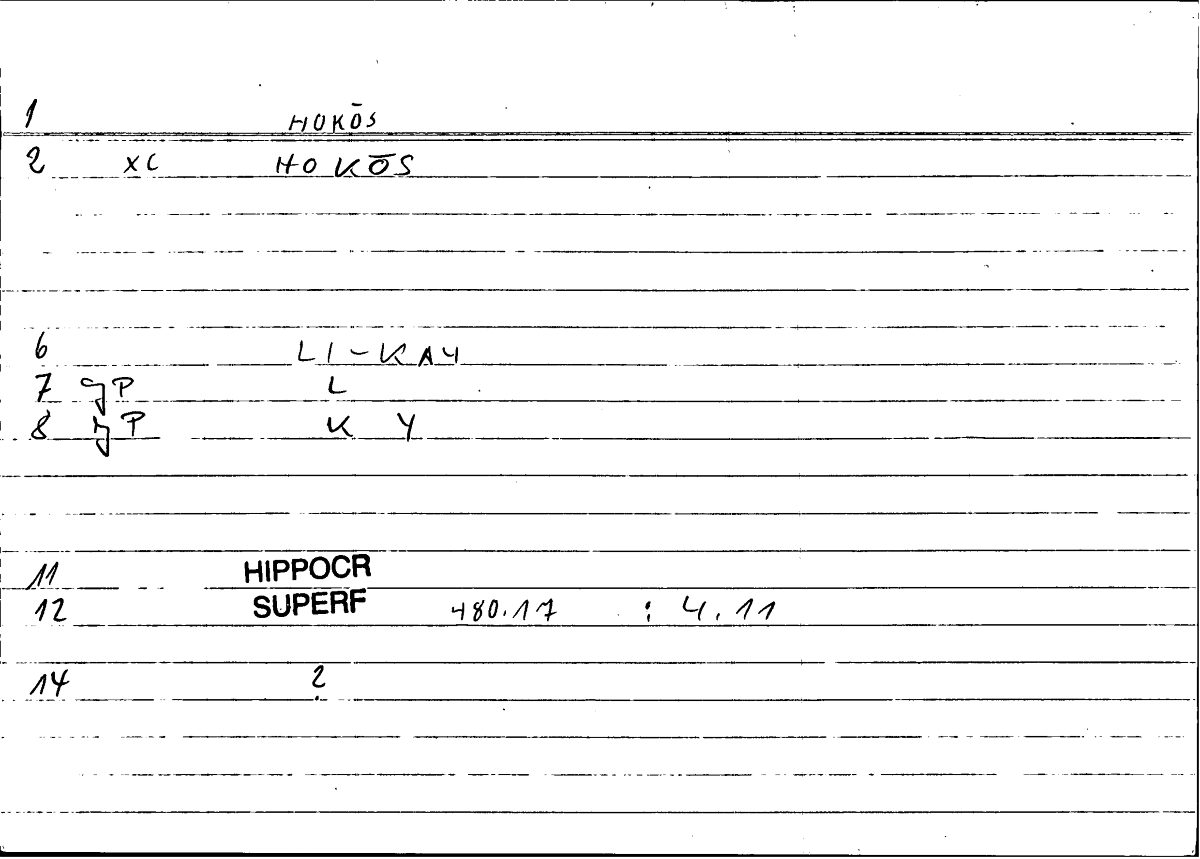 1 HOKŌS
2 XC HO KŌS
6 LI-KAY
7 gP L
8 gP K Y
11 HIPPOCR
12 SUPERF 480.17 : 4.11
14 ?